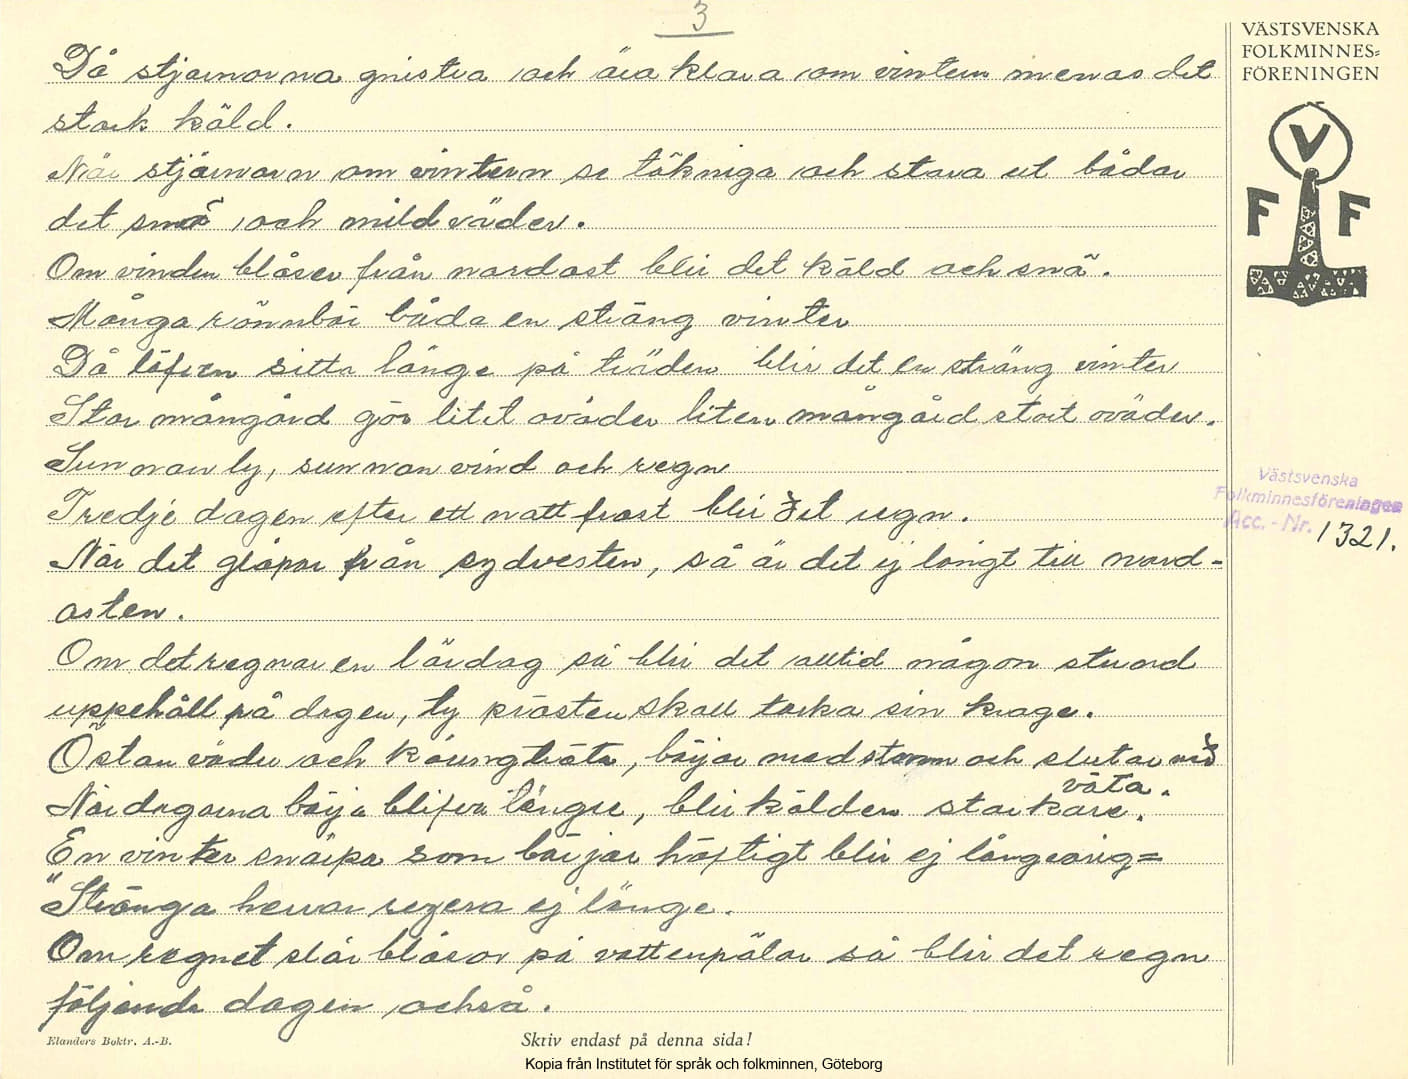 3
VÄSTSVENSKA
FOLKMINNES=
FÖRENINGEN
V
F F
Då stjärnorna gnistra och äro klara om vintern menas det
stark köld.
När stjärnorn om vintern se tökniga och stora ut bådar
det snö och mildväder.
Om vinden blåser från nordost blir det köld och snö.
Många rönnbär båda en sträng vinter
Då löfven sitta länge på träden blir det en sträng vinter
Stor mångård gör litet oväder liten mångård stort oväder.
Sunnan ly, sunnan vind och regn
Tredje dagen efter ett nattfrost blir det regn.
När det glopar från sydvesten, så är det ej långt till nord-
osten.
Om det regnar en lördag så blir det alltid någon stund
uppehåll på dagen, ty prästen skall torka sin krage.
Östan väder och käringträta, börjar med storm och slutar med
väta.
När dagarna börja blifva längre, blir kölden starkare.
En vinter snärpa som börjar häftigt blir ej långvarig=
"Stränga herrar regera ej länge.
Om regnet slår blåsor på vattenpölar så blir det regn
följande dagen också.
Västsvenska
Folkminnesföreningen
Acc. - Nr. 1321.
Elanders Boktr. A.-B.
Skriv endast på denna sida!
Kopia från Institutet för språk och folkminnen, Göteborg